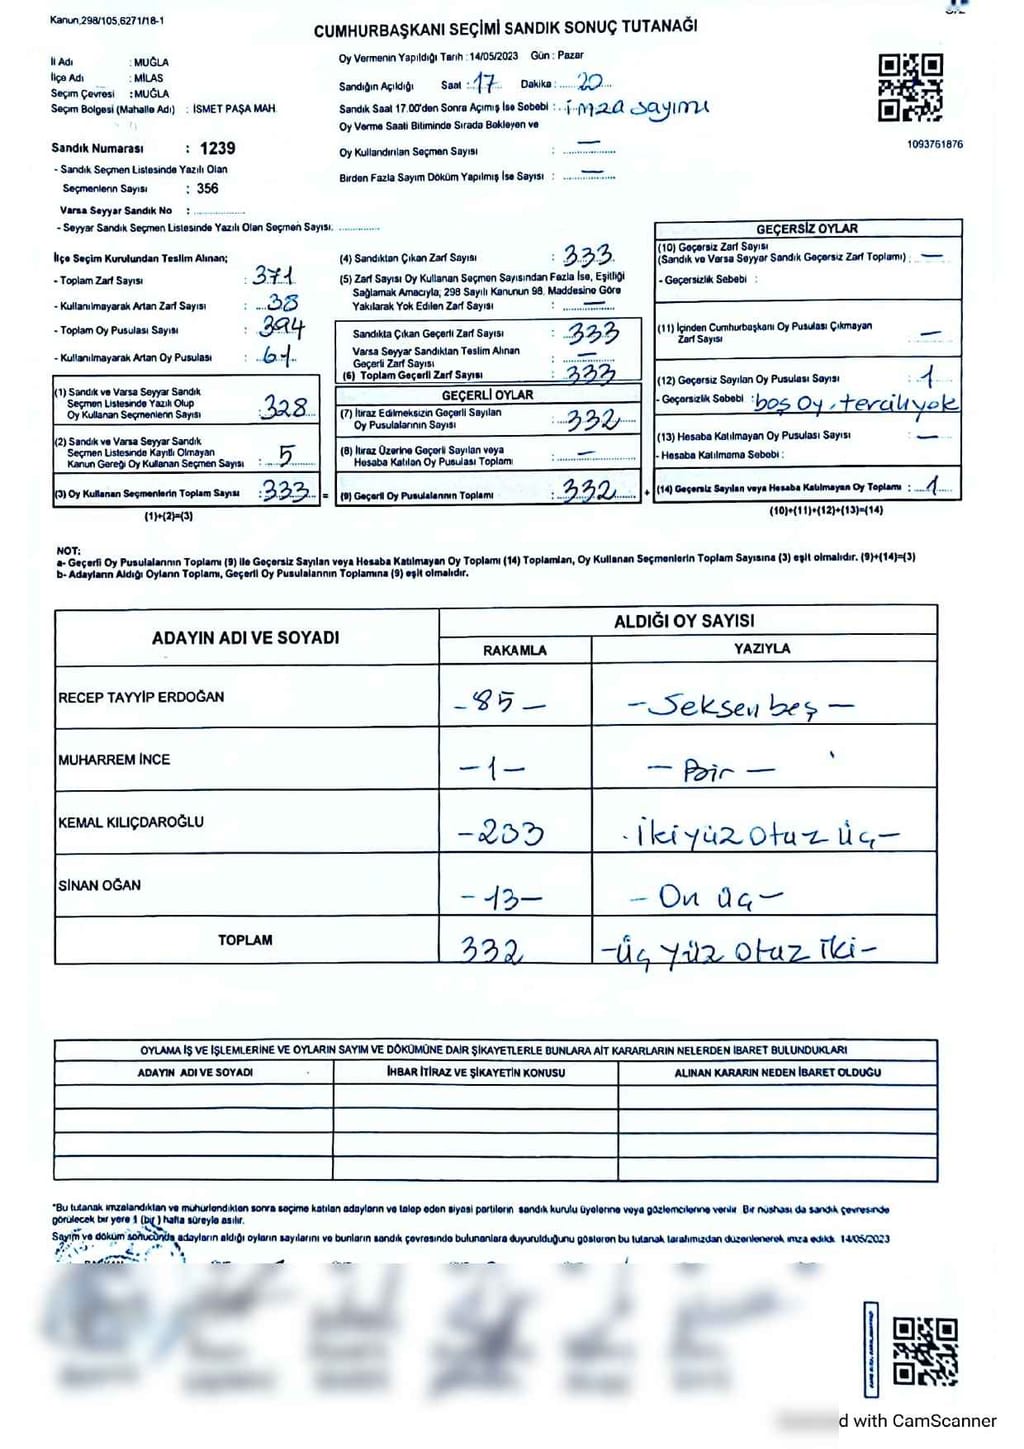 Kanun.298/105,6271/18-1
CUMHURBAŞKANI SEÇİMİ SANDIK SONUÇ TUTANAĞI
İl Adı : MUĞLA
İlçe Adı : MİLAS
Seçim Çevresi : MUĞLA
Seçim Bölgesi (Mahalle Adı) : İSMET PAŞA MAH.
Sandık Numarası : 1239
- Sandık Seçmen Listesinde Yazılı Olan
Seçmenlerin Sayısı : 356
Varsa Seyyar Sandık No : ..............
- Seyyar Sandık Seçmen Listesinde Yazılı Olan Seçmen Sayısı. ............
Oy Vermenin Yapıldığı Tarih : 14/05/2023 Gün : Pazar
Sandığın Açıldığı Saat : 17 Dakika : 20
Sandık Saat 17.00'den Sonra Açımış İse Sebebi : imza sayımı
Oy Verme Saati Bitiminde Sırada Bekleyen ve
Oy Kullandırılan Seçmen Sayısı : —
Birden Fazla Sayım Döküm Yapılmış İse Sayısı : —
1093761876
İlçe Seçim Kurulundan Teslim Alınan;
- Toplam Zarf Sayısı : 371
- Kullanılmayarak Artan Zarf Sayısı : 38
- Toplam Oy Pusulası Sayısı : 394
- Kullanılmayarak Artan Oy Pusulası : 61
(1) Sandık ve Varsa Seyyar Sandık
Seçmen Listesinde Yazılı Olup
Oy Kullanan Seçmenlerin Sayısı : 328
(2) Sandık ve Varsa Seyyar Sandık
Seçmen Listesinde Kayıtlı Olmayan
Kanun Gereği Oy Kullanan Seçmen Sayısı : 5
(3) Oy Kullanan Seçmenlerin Toplam Sayısı : 333 =
(1)+(2)=(3)
(4) Sandıktan Çıkan Zarf Sayısı : 333
(5) Zarf Sayısı Oy Kullanan Seçmen Sayısından Fazla İse, Eşitliği
Sağlamak Amacıyla, 298 Sayılı Kanunun 98. Maddesine Göre
Yakılarak Yok Edilen Zarf Sayısı : —
Sandıkta Çıkan Geçerli Zarf Sayısı : 333
Varsa Seyyar Sandıktan Teslim Alınan
Geçerli Zarf Sayısı : —
(6) Toplam Geçerli Zarf Sayısı : 333
GEÇERLİ OYLAR
(7) İtiraz Edilmeksizin Geçerli Sayılan
Oy Pusulalarının Sayısı : 332
(8) İtiraz Üzerine Geçerli Sayılan veya
Hesaba Katılan Oy Pusulası Toplamı : —
(9) Geçerli Oy Pusulalarının Toplamı : 332 +
GEÇERSİZ OYLAR
(10) Geçersiz Zarf Sayısı
(Sandık ve Varsa Seyyar Sandık Geçersiz Zarf Toplamı) : —
- Geçersizlik Sebebi :
(11) İçinden Cumhurbaşkanı Oy Pusulası Çıkmayan
Zarf Sayısı —
(12) Geçersiz Sayılan Oy Pusulası Sayısı : 1
- Geçersizlik Sebebi : boş oy, tercih yok
(13) Hesaba Katılmayan Oy Pusulası Sayısı : —
- Hesaba Katılmama Sebebi :
(14) Geçersiz Sayılan veya Hesaba Katılmayan Oy Toplamı : 1
(10)+(11)+(12)+(13)=(14)
NOT:
a- Geçerli Oy Pusulalarının Toplamı (9) ile Geçersiz Sayılan veya Hesaba Katılmayan Oy Toplamı (14) Toplamları, Oy Kullanan Seçmenlerin Toplam Sayısına (3) eşit olmalıdır. (9)+(14)=(3)
b- Adayların Aldığı Oyların Toplamı, Geçerli Oy Pusulalarının Toplamına (9) eşit olmalıdır.
ADAYIN ADI VE SOYADI
ALDIĞI OY SAYISI
RAKAMLA YAZIYLA
RECEP TAYYİP ERDOĞAN -85- -Seksen beş-
MUHARREM İNCE -1- -Bir-
KEMAL KILIÇDAROĞLU -233 -İki yüz otuz üç-
SİNAN OĞAN -13- -On üç-
TOPLAM 332 -Üç yüz otuz iki-
OYLAMA İŞ VE İŞLEMLERİNE VE OYLARIN SAYIM VE DÖKÜMÜNE DAİR ŞİKAYETLERLE BUNLARA AİT KARARLARIN NELERDEN İBARET BULUNDUKLARI
ADAYIN ADI VE SOYADI İHBAR İTİRAZ VE ŞİKAYETİN KONUSU ALINAN KARARIN NEDEN İBARET OLDUĞU
"Bu tutanak imzalandıktan ve mühürlendikten sonra seçime katılan adayların ve talep eden siyasi partilerin sandık kurulu üyelerine veya gözlemcilerine verilir. Bir nüshası da sandık çevresinde
görülecek bir yere 1 (bir) hafta süreyle asılır.
Sayım ve döküm sonucunda adayların aldığı oyların sayılarını ve bunların sandık çevresinde bulunanlara duyurulduğunu gösteren bu tutanak tarafımızdan düzenlenerek imza edildi. 14/05/2023
d with CamScanner